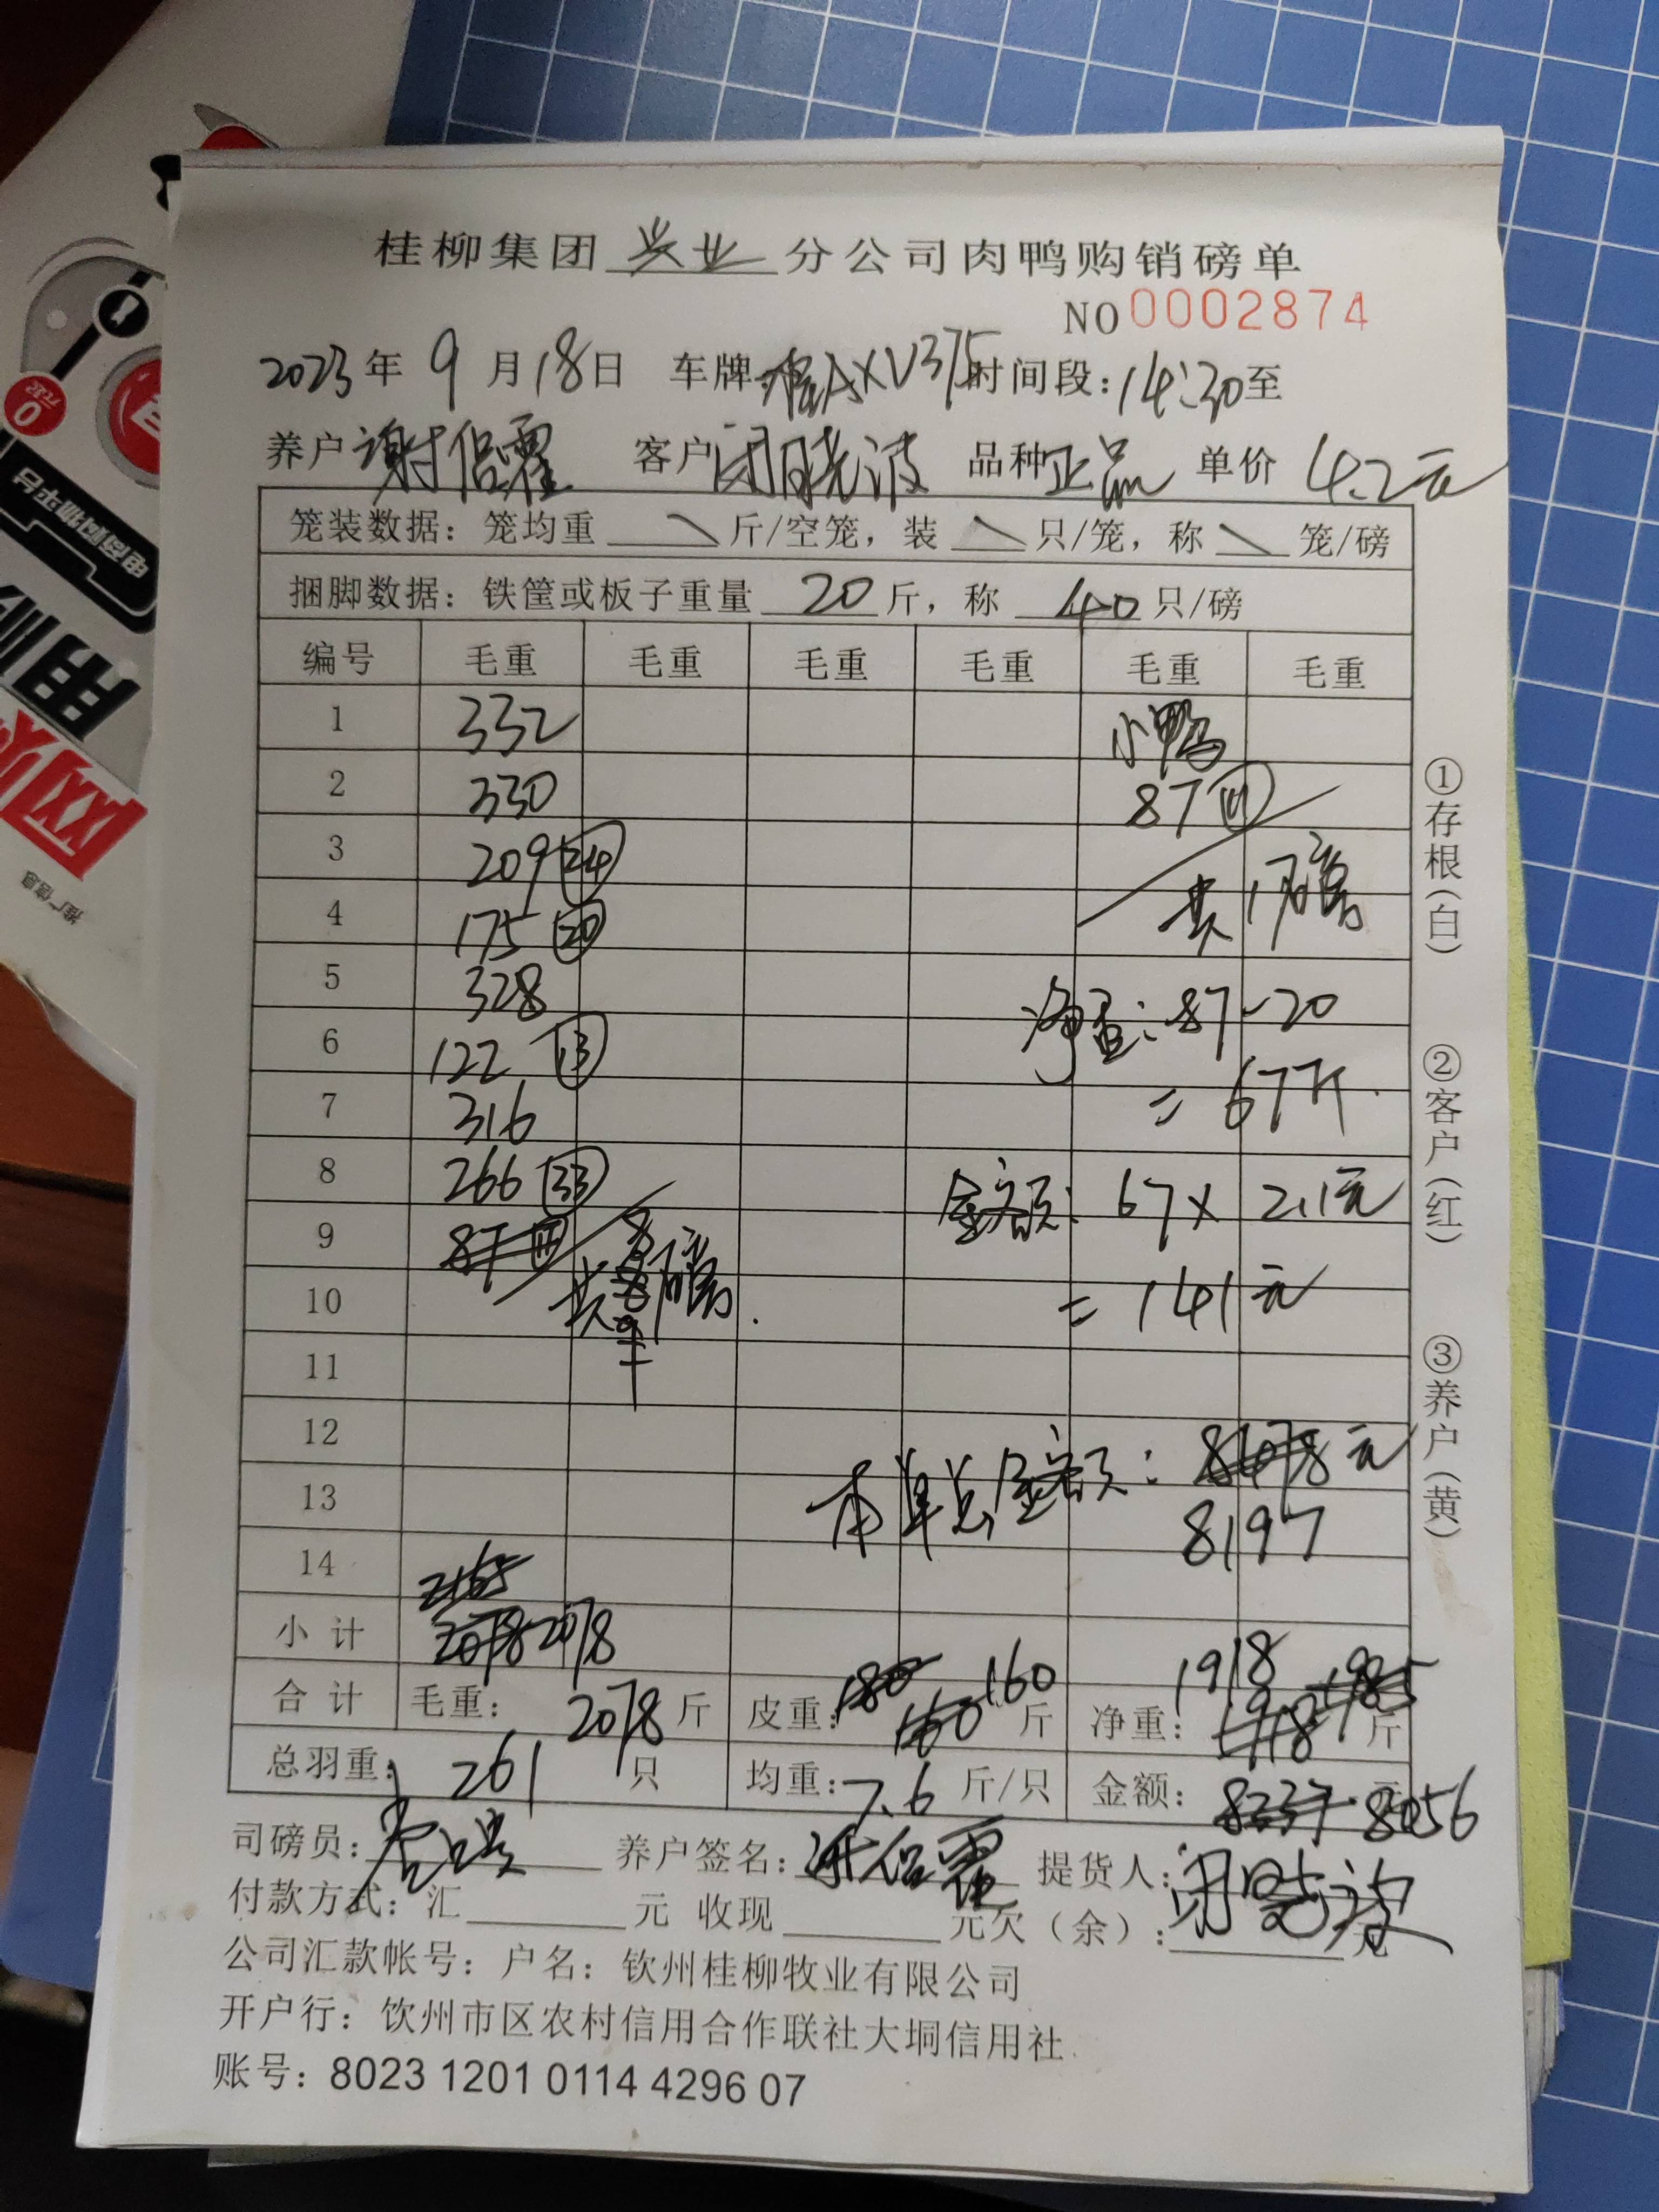 桂柳集团 兴业 分公司肉鸭购销磅单
NO 0002874
2023年 9 月 18日 车牌: 桂AXV375 时间段: 14:30至
养户 谢侣霍 客户 闭晓波 品种 正品 单价 4.2元
笼装数据: 笼均重 \ 斤/空笼, 装 \ 只/笼, 称 \ 笼/磅
捆脚数据: 铁筐或板子重量 20 斤, 称 40 只/磅
编号 毛重 毛重 毛重 毛重 毛重 毛重
1 332 小鸭
2 330 87 ⑪
3 209 ㉔
共1磅
4 175 ⑳
5 328 净重: 87-20
6 122 ⑬
7 316 = 67斤.
8 266 ㉝ 金额: 67× 2.1元
9 87 ⑪
共8磅.
10 = 141元
11
12
本单总金额: 8678元
13 8197
14 2165
小计 2078 2078
合计 毛重: 2078 斤 皮重: 180 160 160 斤 净重: 1918 1985 1918 斤
总羽重: 261 只 均重: 7.6 斤/只 金额: 8337 8056 元
司磅员: 养户签名: 谢侣霍 提货人: 闭晓波
付款方式: 汇 元 收现 元欠(余): 元
公司汇款帐号: 户名: 钦州桂柳牧业有限公司
开户行: 饮州市区农村信用合作联社大垌信用社
账号: 8023 1201 0114 4296 07
①存根(白)
②客户(红)
③养户(黄)
推广信息